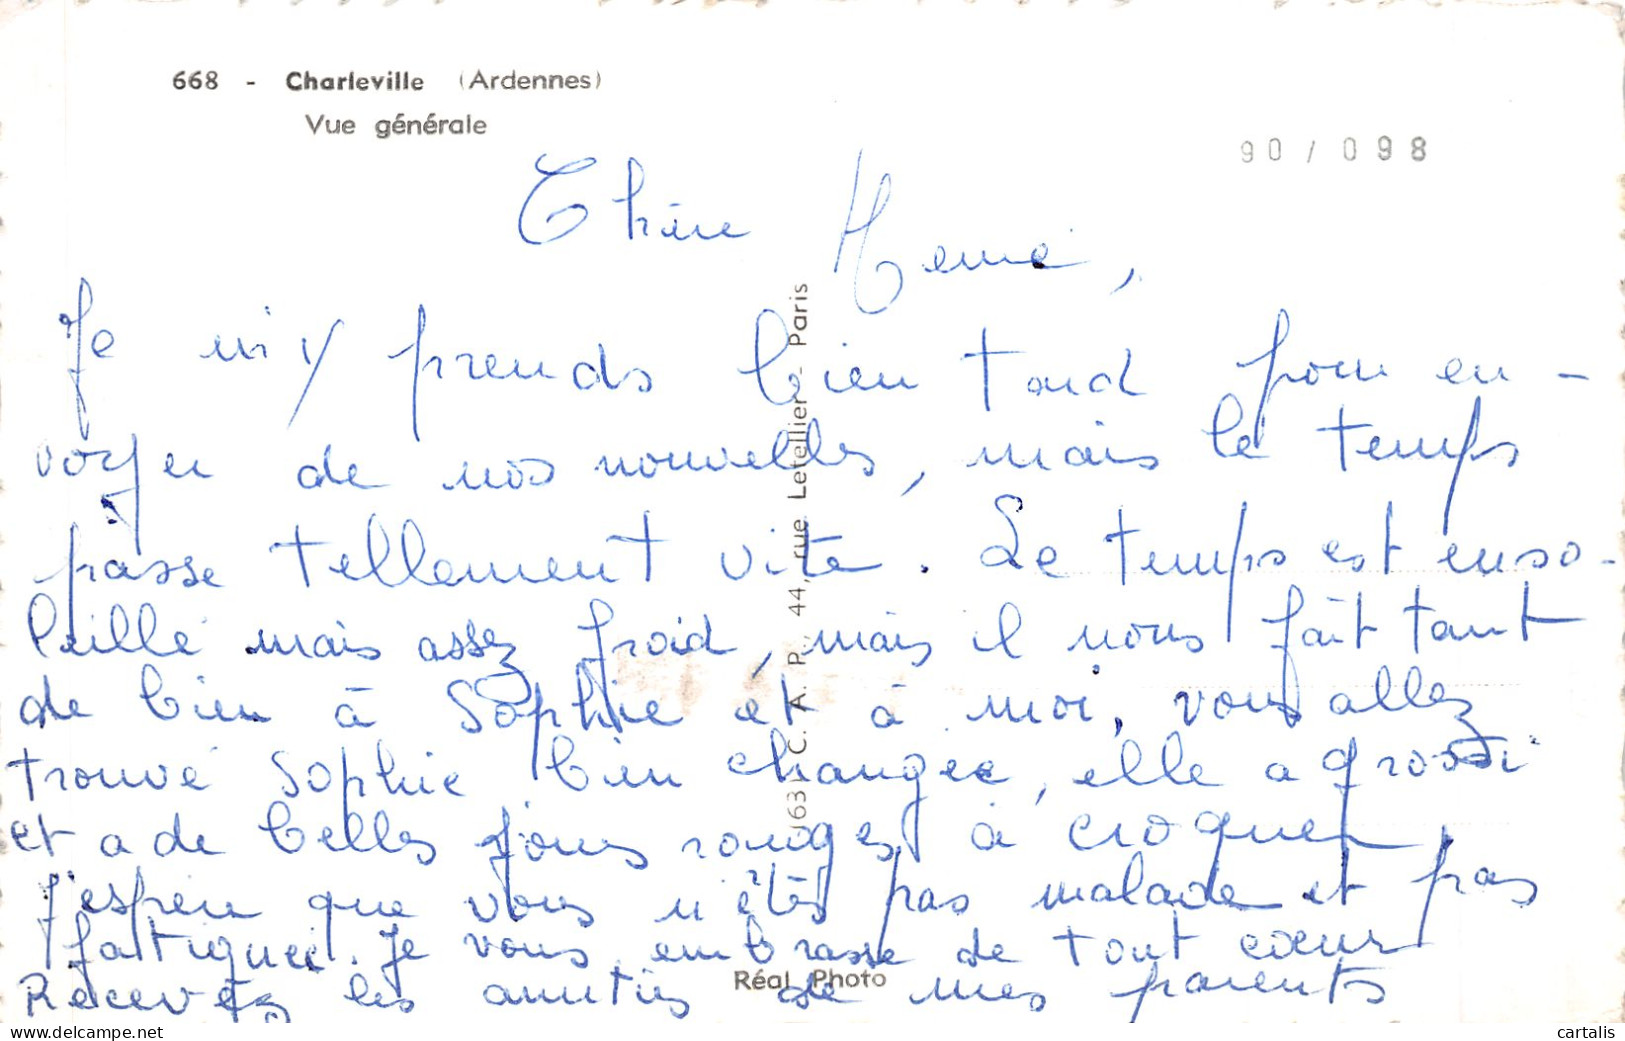 668 - Charleville (Ardennes)
Vue générale
90/098
Chère Mémé,
Je m'y prends bien tard pour en-
voyer de nos nouvelles, mais le temps
passe tellement vite. Le temps est enso-
leillé mais assez froid, mais il nous fait tant
de bien à Sophie et à moi, vous allez
trouvé Sophie bien changée, elle a grossi
et a de belles joues rouges à croquer
J'espère que vous n'êtes pas malade et pas
fatiguée. Je vous embrasse de tout cœur
Recevez les amitiés de mes parents
C. A. P. 44, rue Letellier - Paris
Réal Photo
www.delcampe.net
cartalis